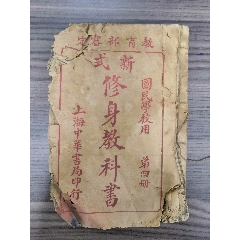 教育部審定
新式
國民學校用
第四冊
修身教科書
上海中華書局印行